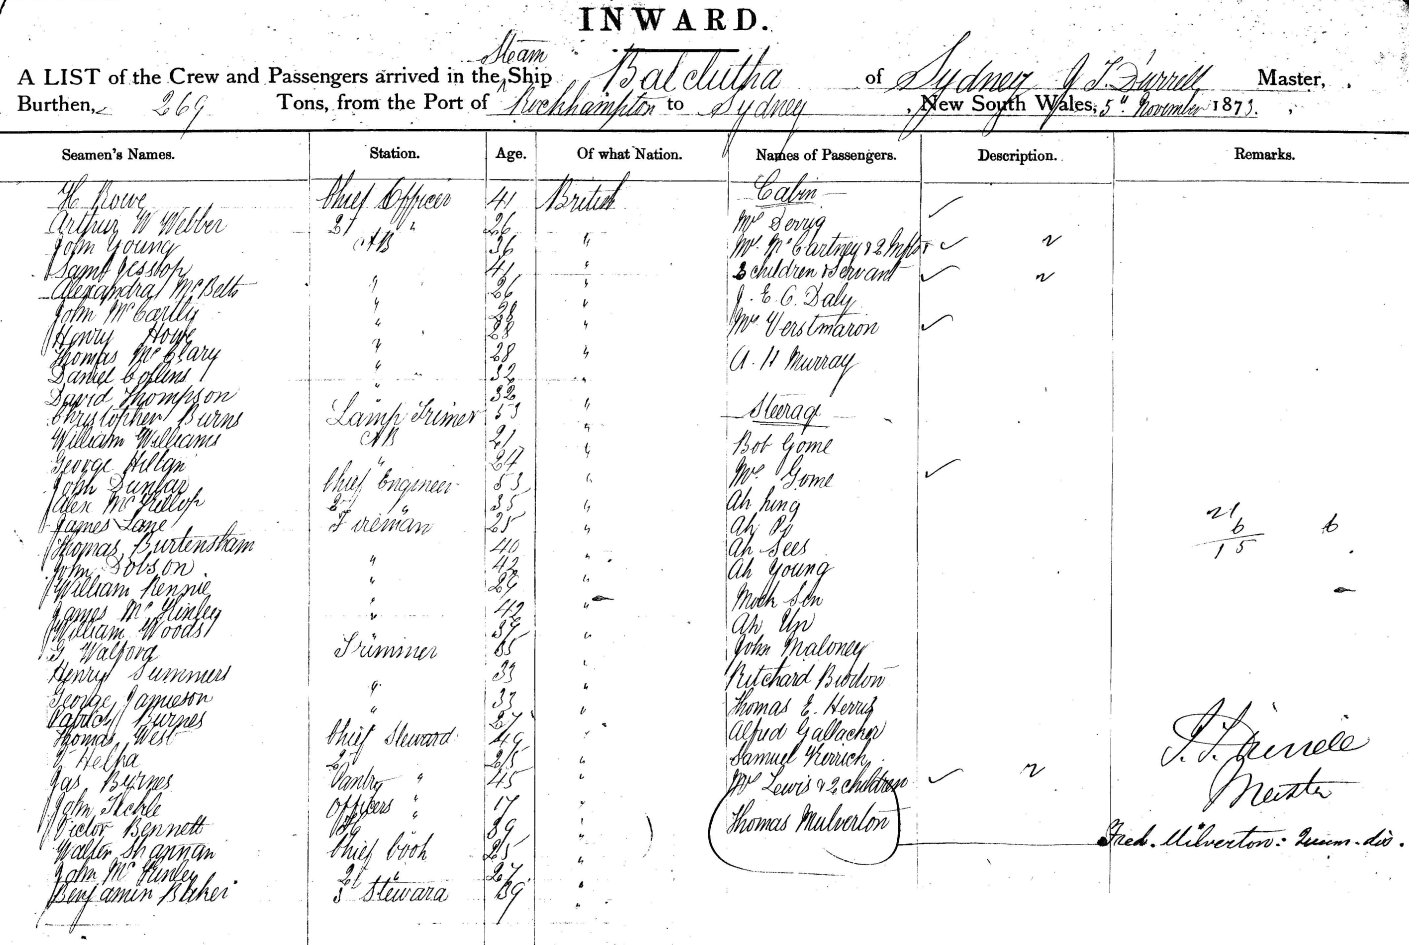 INWARD.
Steam
A LIST of the Crew and Passengers arrived in the Ship Balclutha of Sydney J T. Durrell Master,
Burthen, 269 Tons, from the Port of Rockhampton to Sydney, New South Wales, 5th November 1873.
Seamen's Names. Station. Age. Of what Nation. Names of Passengers. Description. Remarks.
H Rowe Chief Officer 41 British Cabin
Arthur W Webber 2d " 26 Mr Derrig
John Young AB 36 " Mrs McCartney & 2 Infts
Saml Jessop " 41 " 2 children & Servant
Alexandra McBetts " 26 " J. E. C. Daly
John McCartly " 28 " Mrs Verstmaron
Henry Howe " 28 "
Thomas McClary " 28 " A. H Murray
Daniel Collins " 32 "
David Thompson " 32
Christopher Burns Lamp Trimer 53 " Steerage
William Williams AB 21 "
George Hillan " 24 " Bob Gome
John Dunbar Chief Engineer 53 " Mrs Gome
Alex McKillop 2d " 35 " Ah hing
James Lane Fireman 25 " Ah Po 21
6 6
Thomas Burtensham 40 Ah Sees 15
John Dobson " 42 " Ah Young
William Rennie " 29 "
James McKinley " 42 " Mock Sin
William Woods " 39 Ah Un
G Walford Trimmer 35 " John Maloney
Henry Summers 33 " Ritchard Burton
George Jamieson " 33 " Thomas E. Herris
Patrick Burnes " 27 " Alfred Gallacher
Thomas West Chief Steward 49 " J. T. Durrell
Helpa 2d 25 " Samuel Kerrich
Jas Burnes Pantry " 45 " Mrs Lewis & 2 children Master
John Tickle Officers " 17 "
Victor Bennett 39 " Thomas Mulverton Fred. Milverton:
Walter Shannan Chief Cook 25 "
John McKinley 2d " 27 "
Benjamin Baker 3 Steward 39 "